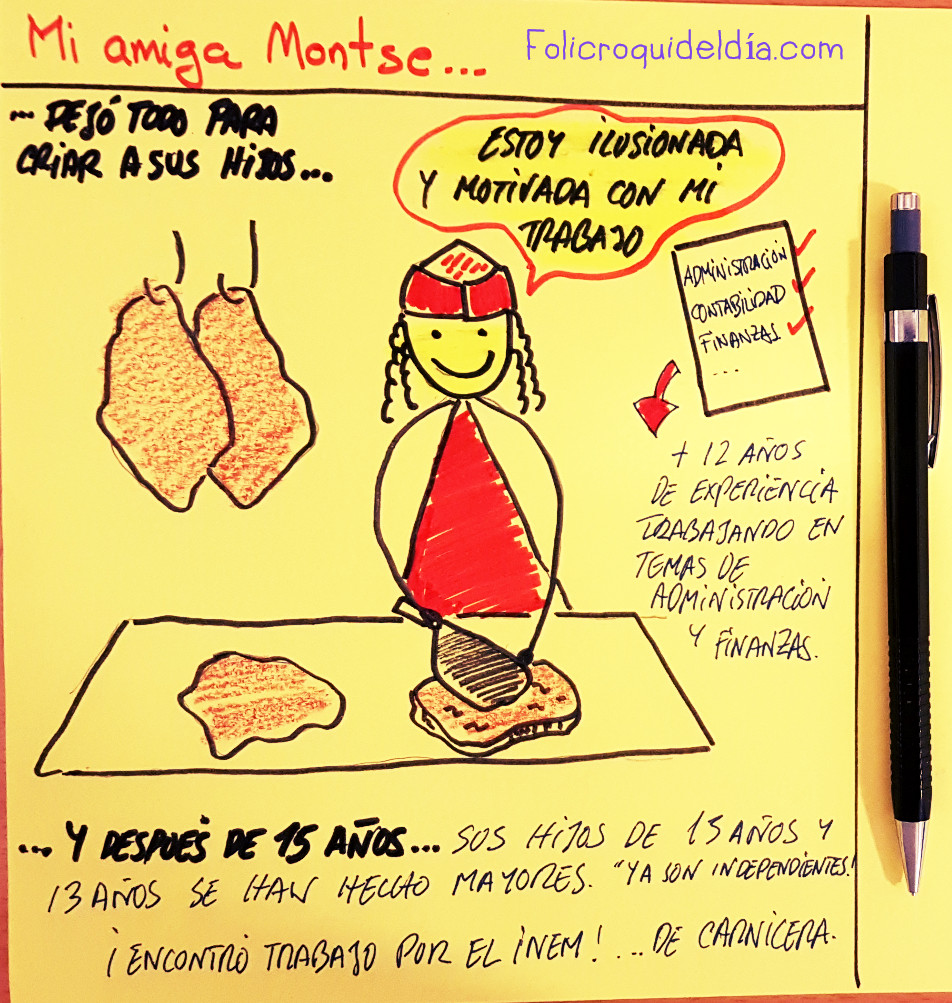 Mi amiga Montse...
Folicroquideldía.com
... DEJÓ TODO PARA
CRIAR A SUS HIJOS...
ESTOY ILUSIONADA
Y MOTIVADA CON MI
TRABAJO
ADMINISTRACIÓN
CONTABILIDAD
FINANZAS
...
+ 12 AÑOS
DE EXPERIENCIA
TRABAJANDO EN
TEMAS DE
ADMINISTRACIÓN
Y FINANZAS.
... Y DESPUÉS DE 15 AÑOS... SUS HIJOS DE 15 AÑOS Y
13 AÑOS SE HAN HECHO MAYORES. "YA SON INDEPENDIENTES!
¡ENCONTRÓ TRABAJO POR EL INEM! ... DE CARNICERA.